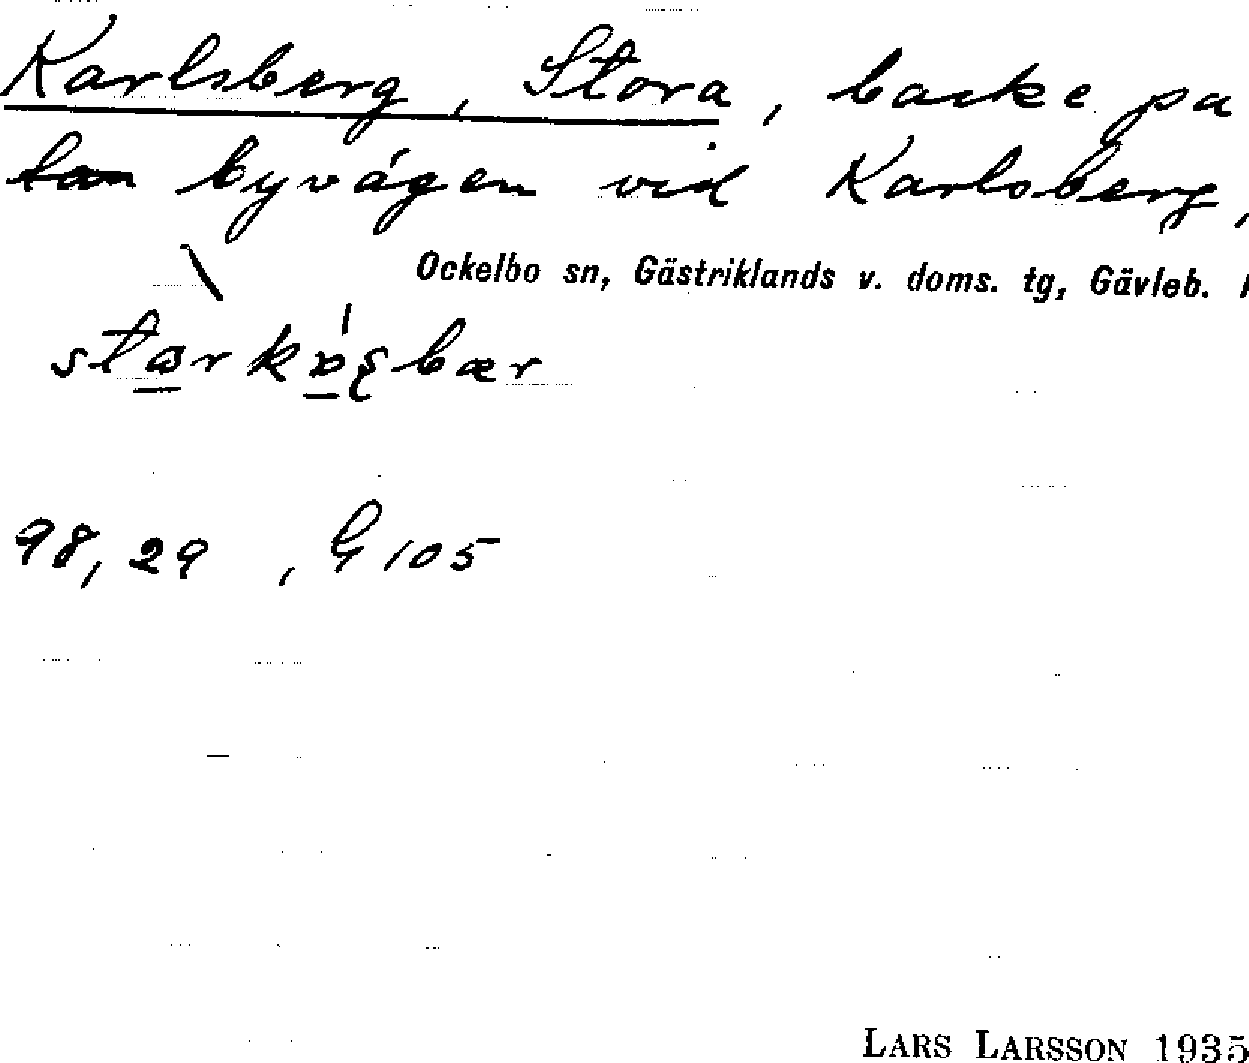 Karlsberg, Stora, backe på
byvägen vid Karlsberg,
Ockelbo sn, Gästriklands v. doms. tg, Gävleb.
98, 29, G 105
LARS LARSSON 1935